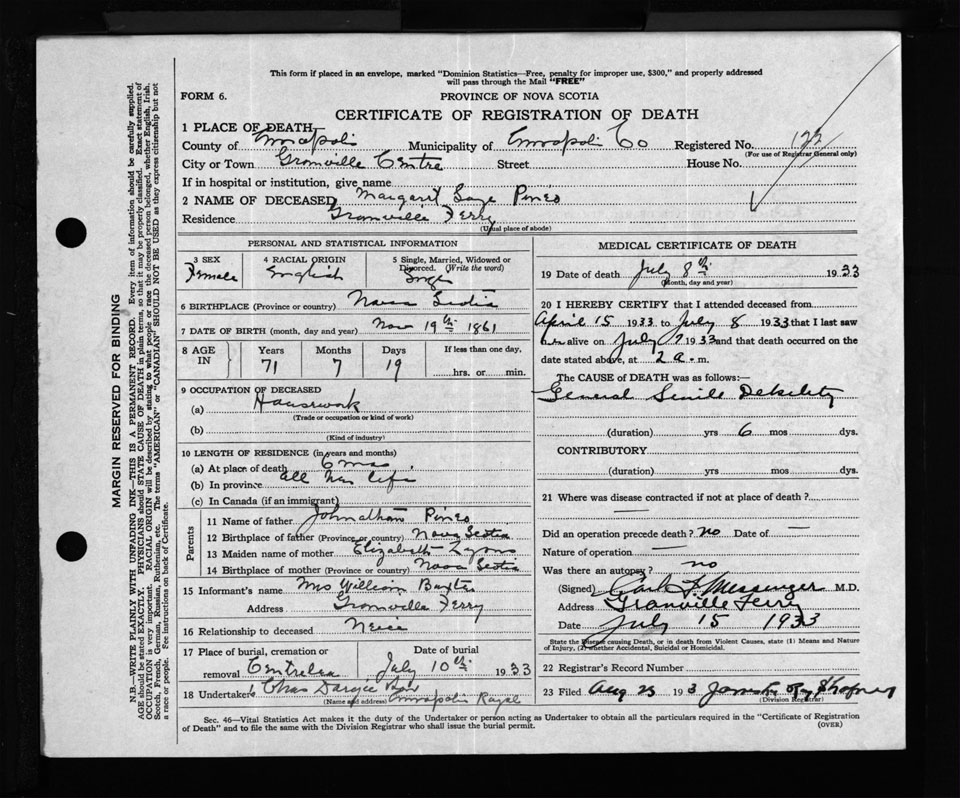 This form if placed in an envelope, marked "Dominion Statistics—Free, penalty for improper use, $300," and properly addressed
will pass through the Mail "FREE"
FORM 6.
PROVINCE OF NOVA SCOTIA
CERTIFICATE OF REGISTRATION OF DEATH
1 PLACE OF DEATH
County of Annapolis Municipality of Annapolis Co Registered No. 122
(For use of Registrar General only)
City or Town Granville Centre Street House No.
If in hospital or institution, give name
2 NAME OF DECEASED Margaret Pineo
Residence Granville Ferry
(Usual place of abode)
PERSONAL AND STATISTICAL INFORMATION
3 SEX Female
4 RACIAL ORIGIN English
5 Single, Married, Widowed or Divorced. (Write the word) Single
6 BIRTHPLACE (Province or country) Nova Scotia
7 DATE OF BIRTH (month, day and year) Nov 19th 1861
8 AGE IN Years 71 Months 7 Days 19 If less than one day, hrs. or min.
9 OCCUPATION OF DECEASED
(a) Housework
(Trade or occupation or kind of work)
(b)
(Kind of industry)
10 LENGTH OF RESIDENCE (in years and months)
(a) At place of death 6 mos
(b) In province all her life
(c) In Canada (if an immigrant)
Parents
11 Name of father Johnathan Pineo
12 Birthplace of father (Province or country) Nova Scotia
13 Maiden name of mother Elizabeth Lyons
14 Birthplace of mother (Province or country) Nova Scotia
15 Informant's name Mrs William Baxter
Address Granville Ferry
16 Relationship to deceased Neice
17 Place of burial, cremation or removal Centrelea
Date of burial July 10th 1933
18 Undertaker Chas Dargie
(Name and address) Annapolis Royal
MEDICAL CERTIFICATE OF DEATH
19 Date of death July 8th 1933
(Month, day and year)
20 I HEREBY CERTIFY that I attended deceased from
April 15 1933 to July 8 1933 that I last saw
her alive on July 7 1933 and that death occurred on the
date stated above, at 2 a. m.
The CAUSE OF DEATH was as follows:—
General Senile Debility
(duration) yrs 6 mos dys.
CONTRIBUTORY
(duration) yrs mos dys.
21 Where was disease contracted if not at place of death? —
Did an operation precede death? no Date of —
Nature of operation —
Was there an autopsy? no
(Signed) Messenger M.D.
Address Granville Ferry
Date July 15 1933
State the Disease causing Death, or in death from Violent Causes, state (1) Means and Nature
of Injury, (2) whether Accidental, Suicidal or Homicidal.
22 Registrar's Record Number
23 Filed Aug 23 193
(Division Registrar)
Sec. 46—Vital Statistics Act makes it the duty of the Undertaker or person acting as Undertaker to obtain all the particulars required in the "Certificate of Registration
of Death" and to file the same with the Division Registrar who shall issue the burial permit.
(OVER)
MARGIN RESERVED FOR BINDING
N.B.—WRITE PLAINLY WITH UNFADING INK—THIS IS A PERMANENT RECORD. Every item of information should be carefully supplied.
AGE should be stated EXACTLY. PHYSICIANS should STATE CAUSE OF DEATH in plain terms, so that it may be properly classified. Exact statement of
OCCUPATION is very important. RACIAL ORIGIN will be described by stating to what people or race the deceased person belonged, whether English, Irish,
Scotch, French, German, Russian, Ruthenian, etc. The terms "AMERICAN" or "CANADIAN" SHOULD NOT BE USED as they express citizenship but not
a race or people. See instructions on back of Certificate.